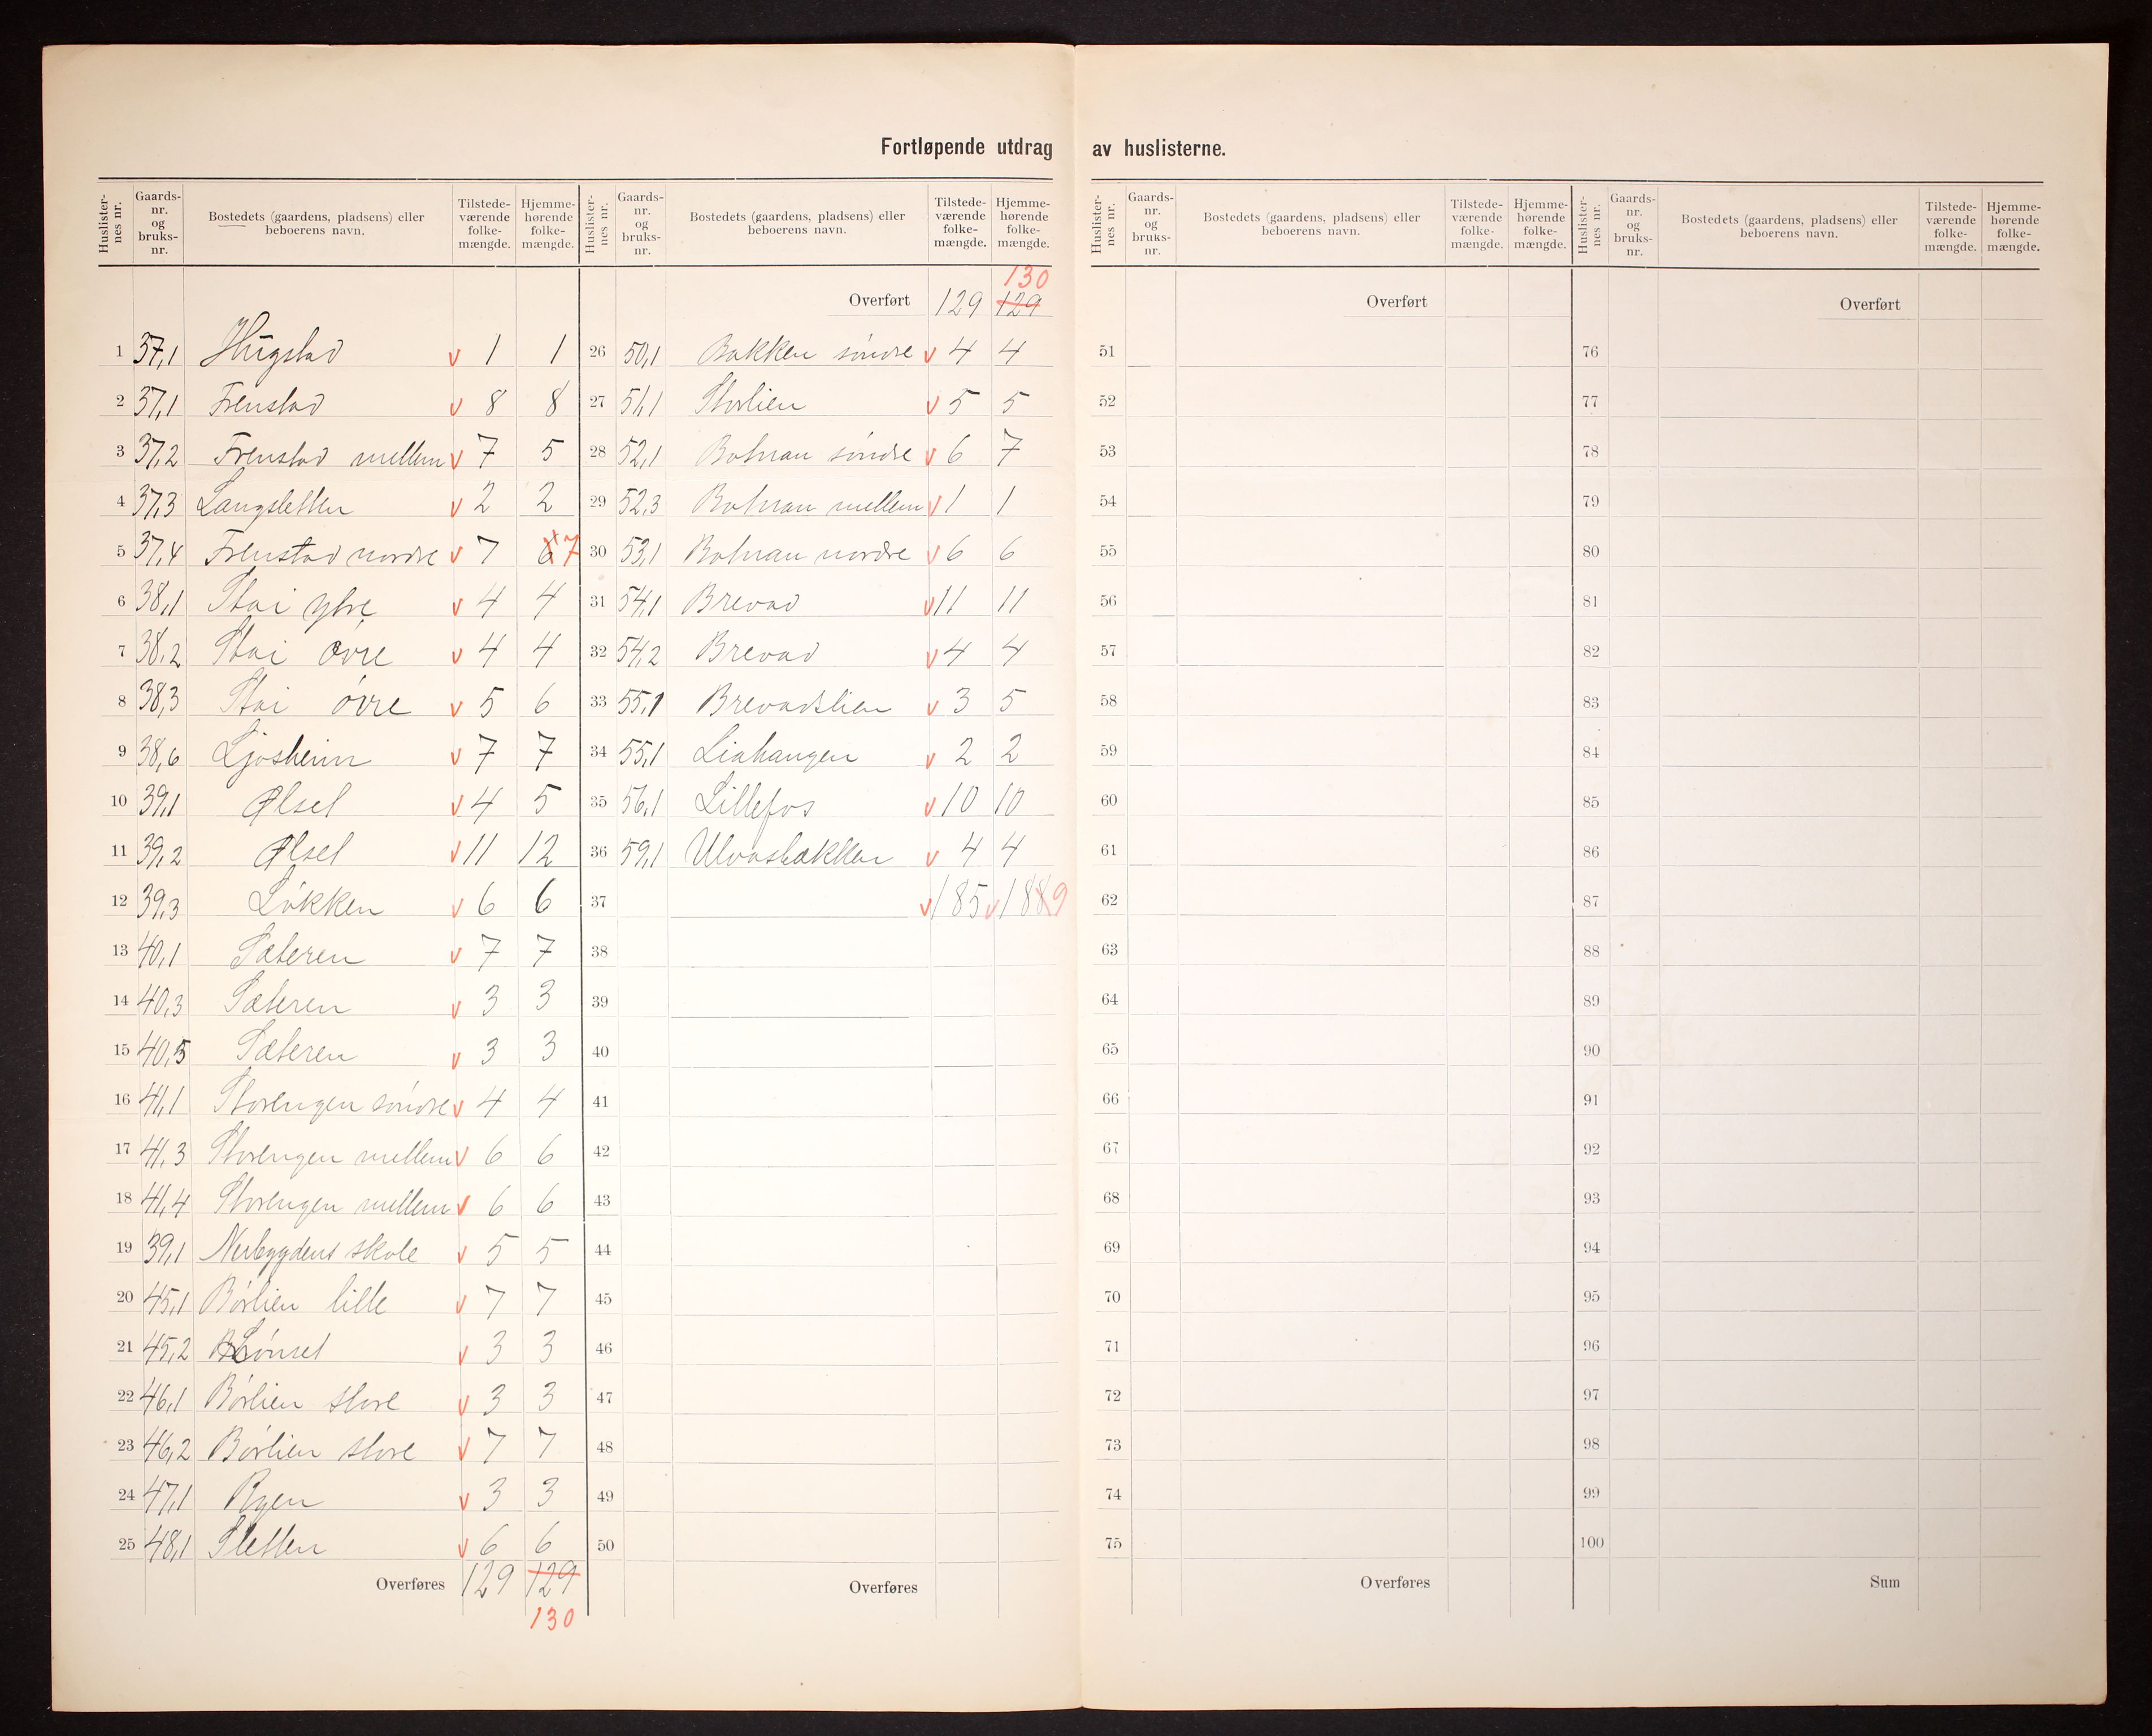 Fortløpende utdrag av huslisterne.
Huslister-nes nr. | Gaards-nr. og bruks-nr. | Bostedets (gaardens, pladsens) eller beboerens navn. | Tilstede-værende folke-mængde. | Hjemme-hørende folke-mængde.
1 37,1 Hugstad v 1 1
2 37,1 Frenstad v 8 8
3 37,2 Frenstad mellem v 7 5
4 37,3 Langsletten v 2 2
5 37,4 Frenstad nordre v 7 6 7
6 38,1 Stai ytre v 4 4
7 38,2 Stai øvre v 4 4
8 38,3 Stai øvre v 5 6
9 38,6 Ljosheim v 7 7
10 39,1 Ølset v 4 5
11 39,2 Ølset v 11 12
12 39,3 Løkken v 6 6
13 40,1 Sæteren v 7 7
14 40,3 Sæteren v 3 3
15 40,5 Sæteren v 3 3
16 41,1 Storengen søndre v 4 4
17 41,3 Storengen mellem v 6 6
18 41,4 Storengen mellem v 6 6
19 39,1 Nerbygdens skole v 5 5
20 45,1 Børlien lille v 7 7
21 45,2 Lønset v 3 3
22 46,1 Børlien store v 3 3
23 46,2 Børlien store v 7 7
24 47,1 Ryen v 3 3
25 48,1 Sletten v 6 6
Overføres 129 129
130
Huslister-nes nr. | Gaards-nr. og bruks-nr. | Bostedets (gaardens, pladsens) eller beboerens navn. | Tilstede-værende folke-mængde. | Hjemme-hørende folke-mængde.
130
Overført 129 129
26 50,1 Bakken søndre v 4 4
27 51,1 Storlien v 5 5
28 52,1 Botnan søndre v 6 7
29 52,3 Botnan mellem v 1 1
30 53,1 Botnan nordre v 6 6
31 54,1 Brevad v 11 11
32 54,2 Brevad v 4 4
33 55,1 Brevadslien v 3 5
34 55,1 Liahaugen v 2 2
35 56,1 Lillefos v 10 10
36 59,1 Ulvasbakken v 4 4
37 v 185 v 188 9
38
39
40
41
42
43
44
45
46
47
48
49
50
Overføres
Huslister-nes nr. | Gaards-nr. og bruks-nr. | Bostedets (gaardens, pladsens) eller beboerens navn. | Tilstede-værende folke-mængde. | Hjemme-hørende folke-mængde.
Overført
51
52
53
54
55
56
57
58
59
60
61
62
63
64
65
66
67
68
69
70
71
72
73
74
75
Overføres
Huslister-nes nr. | Gaards-nr. og bruks-nr. | Bostedets (gaardens, pladsens) eller beboerens navn. | Tilstede-værende folke-mængde. | Hjemme-hørende folke-mængde.
Overført
76
77
78
79
80
81
82
83
84
85
86
87
88
89
90
91
92
93
94
95
96
97
98
99
100
Sum